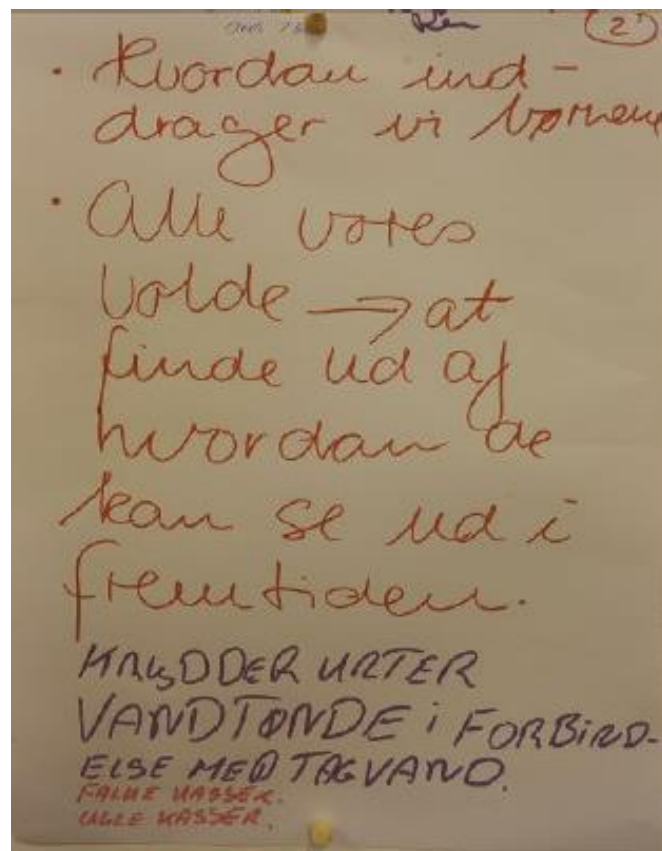 2
• Hvordan ind-
drager vi børnene
• Alle vores
volde → at
finde ud af
hvordan de
kan se ud i
fremtiden.
KRYDDER URTER
VANDTØNDE i FORBIND-
ELSE MED TAGVAND.
FALKE KASSER.
UGLE KASSER.